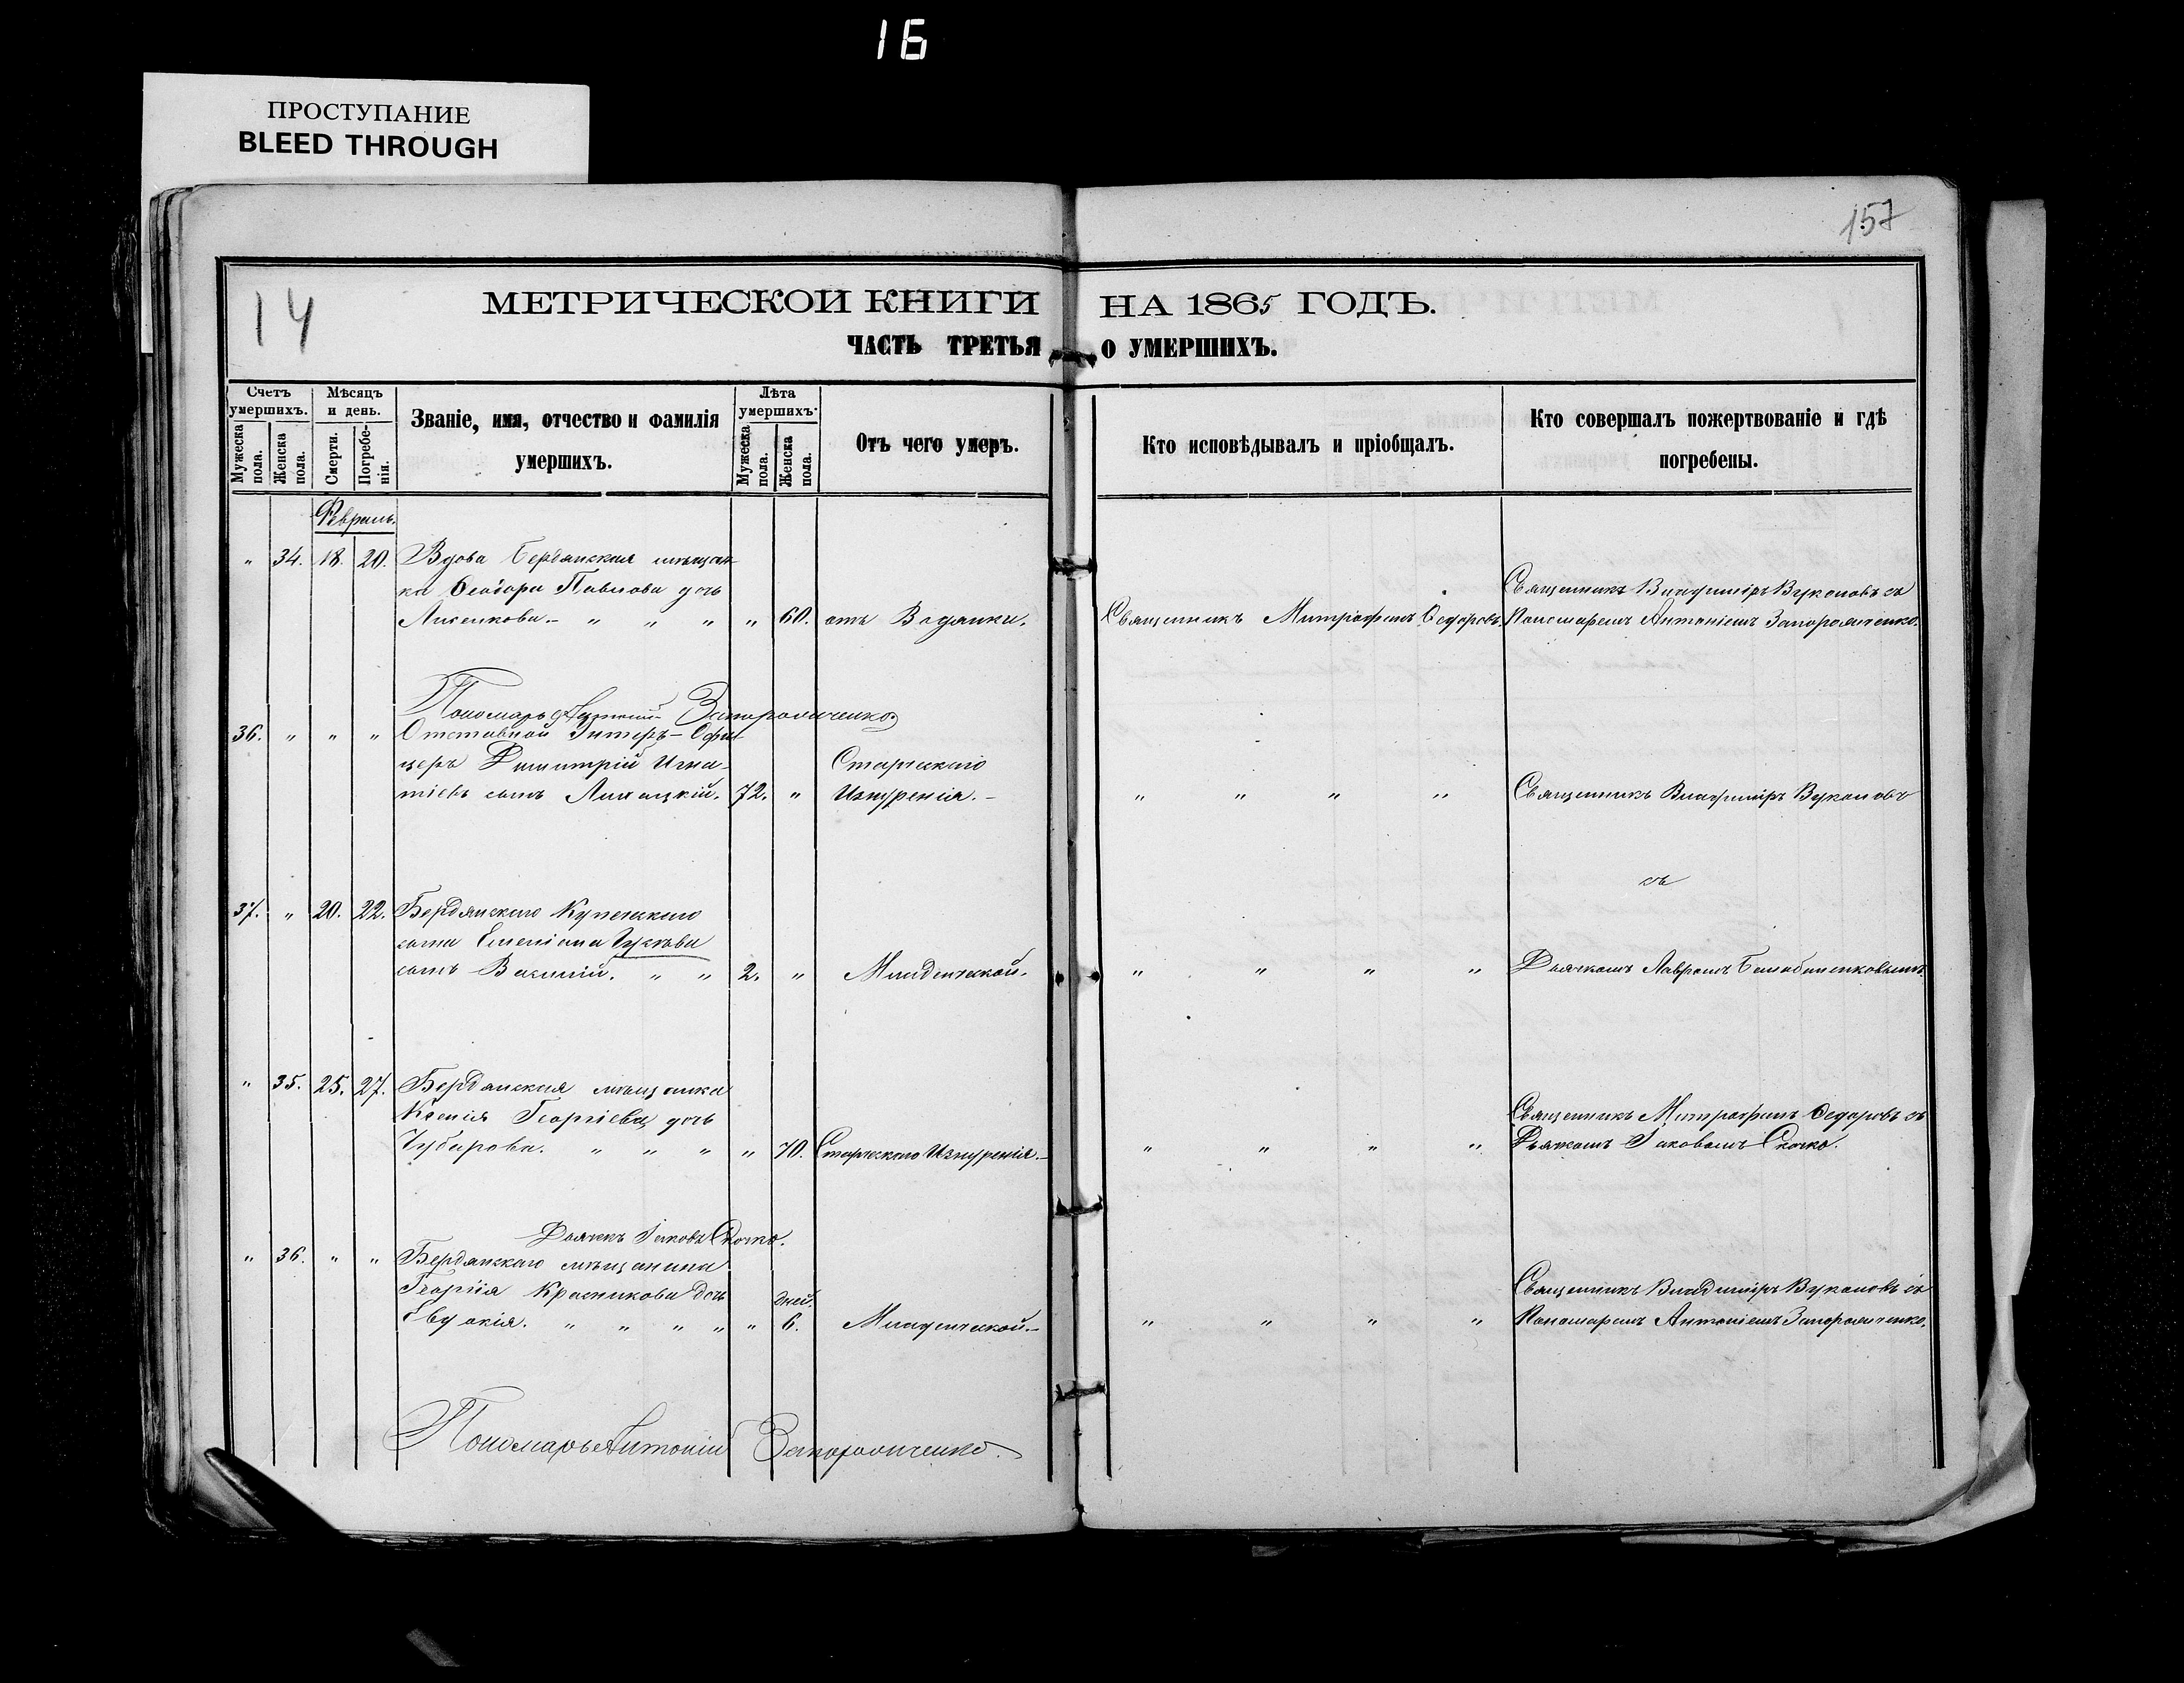 16
ПРОСТУПАНИЕ
BLEED THROUGH
157
14
МЕТРИЧЕСКОЙ КНИГИ НА 1865 ГОДЪ.
ЧАСТЬ ТРЕТЬЯ О УМЕРШИХЪ.
Счетъ умершихъ.
Мужеска пола.
Женска пола.
Мѣсяцъ и день.
Смерти.
Погребенія.
Званіе, имя, отчество и фамилія
умершихъ.
Лѣта умершихъ.
Мужеска пола.
Женска пола.
Отъ чего умеръ.
Кто исповѣдывалъ и пріобщалъ.
Кто совершалъ пожертвованіе и гдѣ
погребены.
Февраль.
" 34. 18. 20. Вдова Бердянская мѣщан-
ка Ѳеодора Павлова дочь Священникъ Владиміръ Вукановъ съ
" " " " 60. отъ Водянки. Священникъ Митрофанъ Ѳедоровъ. Пономаремъ Антоніемъ Запорожченко.
Пономарь Антоній Запорожченко
36. " " " Отставной Унтеръ-Офи-
церъ Димитрій Игна- Старческаго
тіевъ сынъ 72. " Изнуренія. " " " " Священникъ Владиміръ Вукановъ
съ
37. " 20. 22. Бердянскаго Купеческаго
сына Емеліана
сынъ Василій. " " 2. " Младенческой. " " " " Дьячкомъ Лавромъ
" 35. 25. 27. Бердянская мѣщанка
Ксенія Георгіева дочь Священникъ Митрофанъ Ѳедоровъ съ
Чубарова. " " " " 70. Старческаго Изнуренія. " " " " Дьячкомъ Іаковомъ Скочко.
Дьячекъ Іаковъ Скочко.
" 36. " " Бердянскаго мѣщанина
Георгія Красникова дочь дней. Священникъ Владиміръ Вукановъ съ
Евдокія. " " " " " 6. Младенческой. " " " " Пономаремъ Антоніемъ Запорожченко.
Пономарь Антоній Запорожченко.